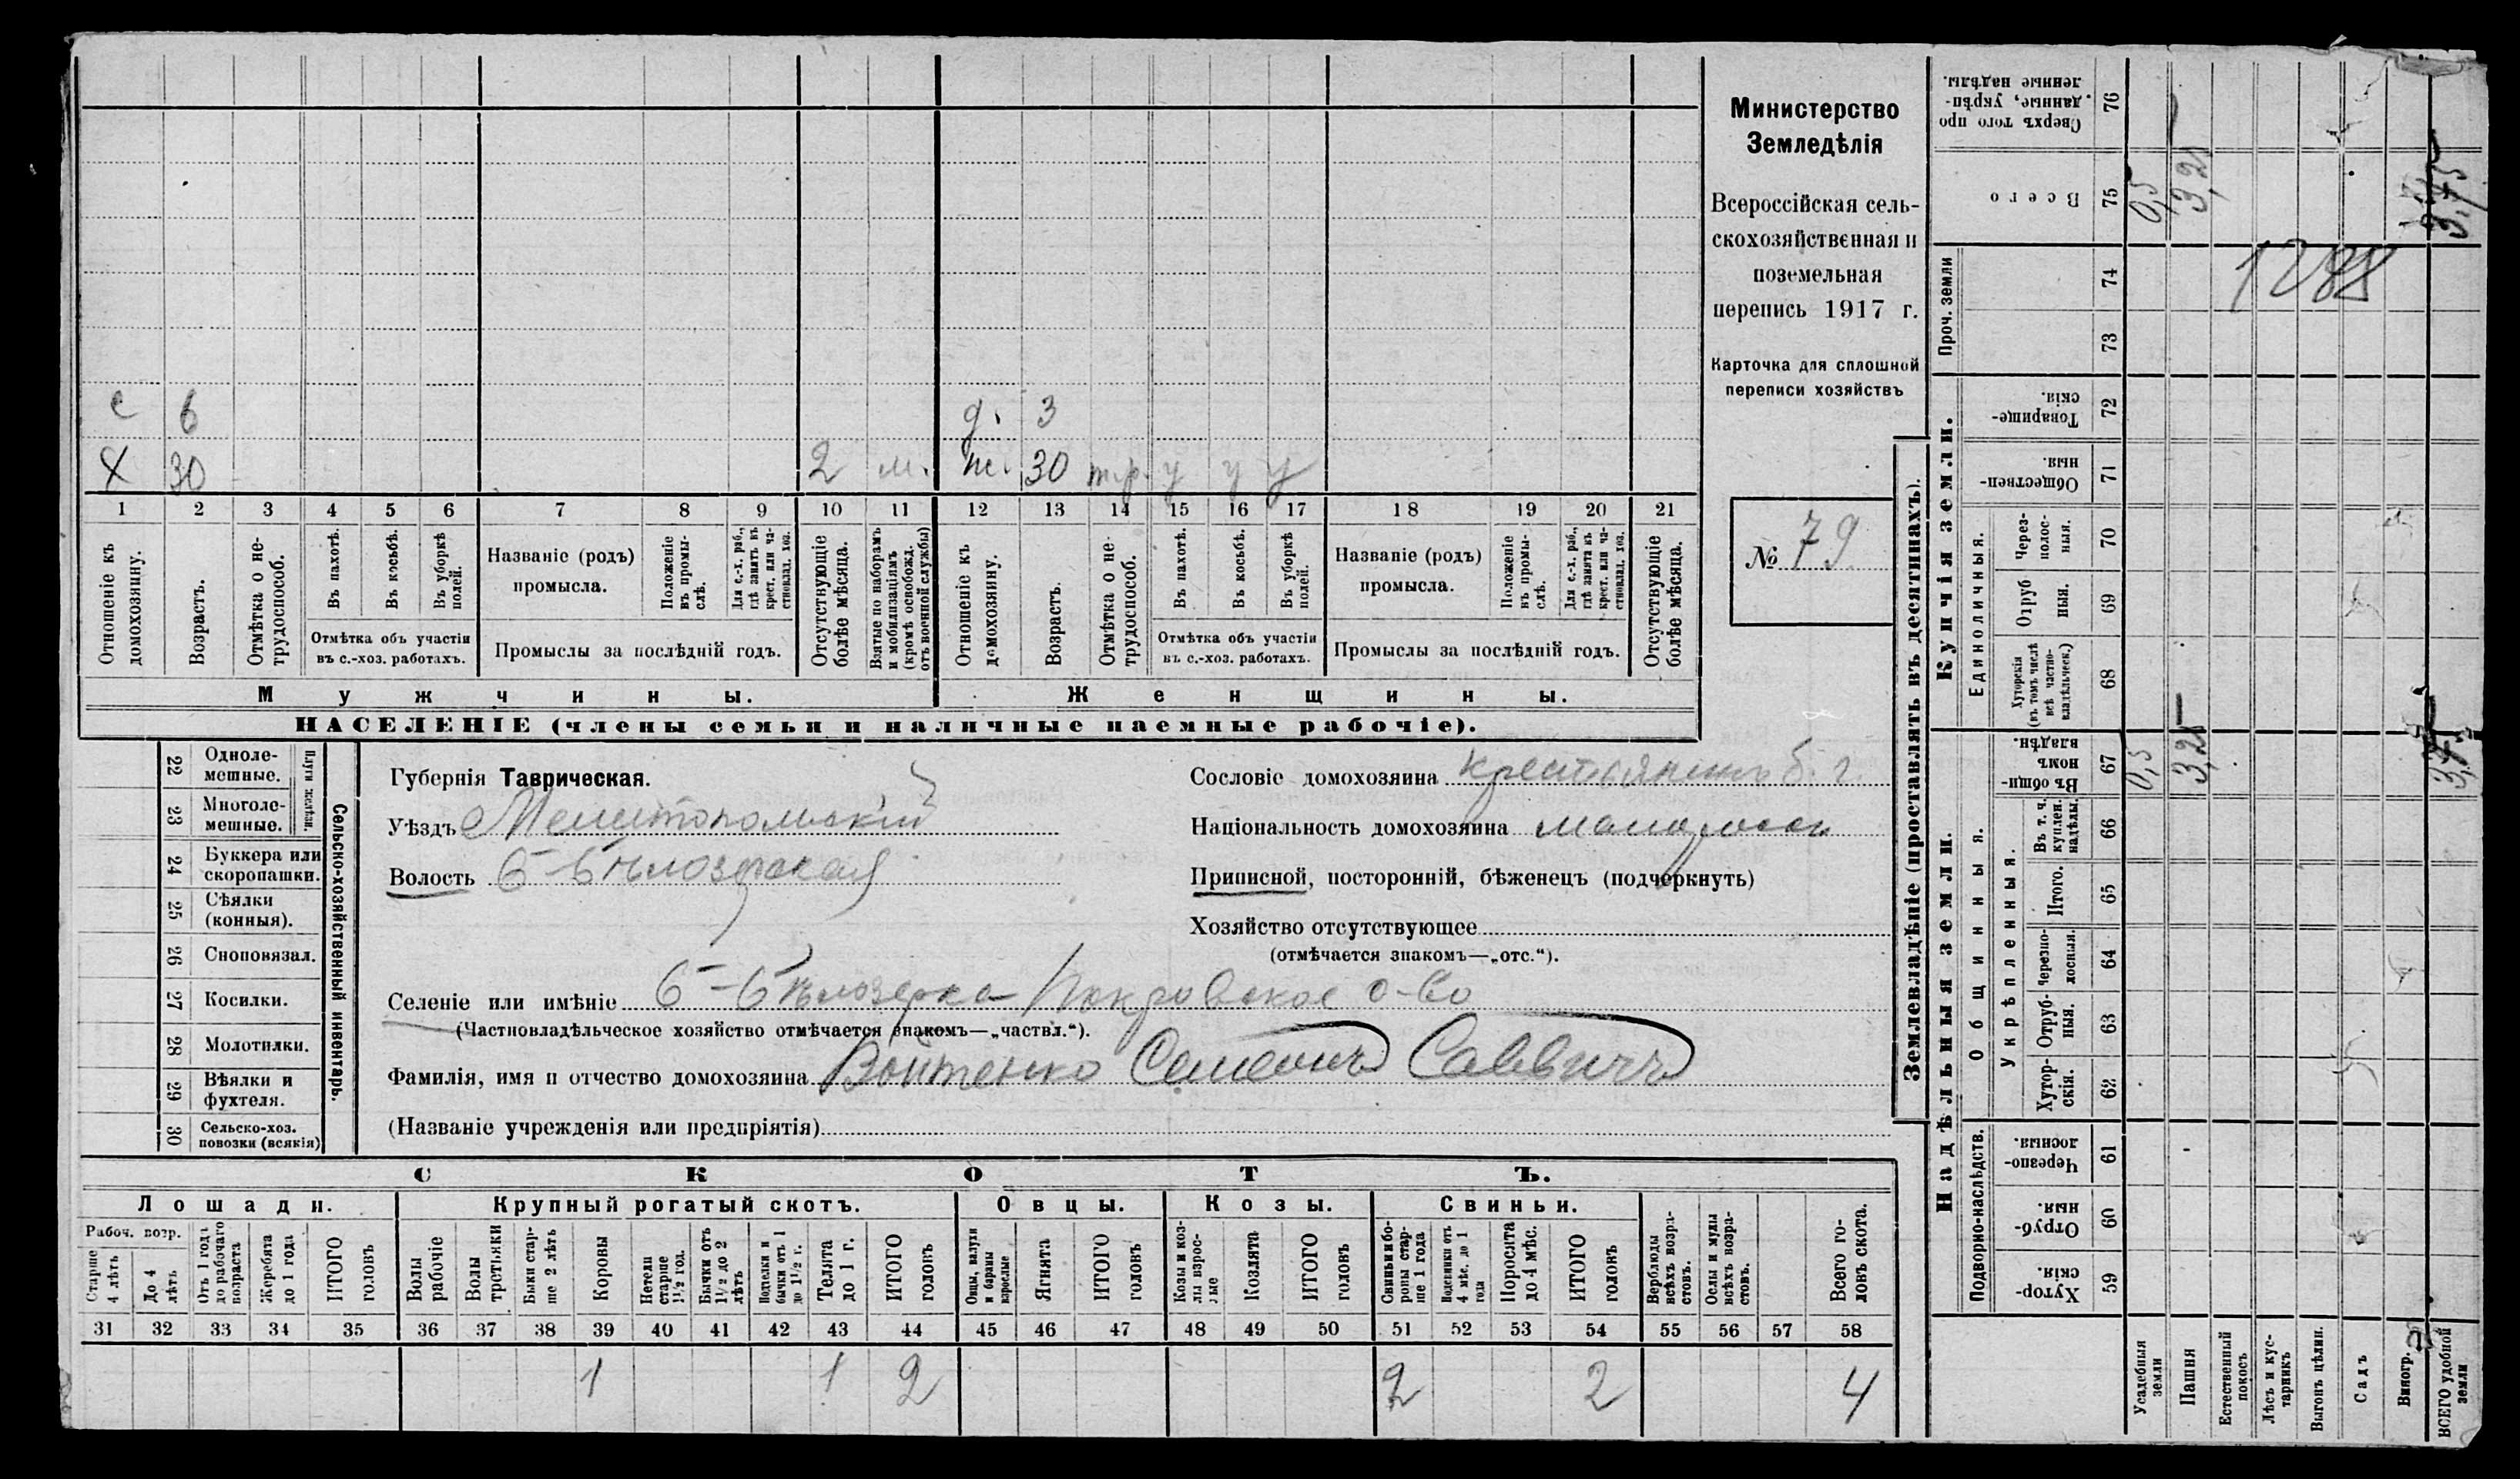 с 6 д. 3
Х 30 2 м. ж. 30 т.р. у у у
1 2 3 4 5 6 7 8 9 10 11 12 13 14 15 16 17 18 19 20 21
Отношеніе къ домохозяину.
Возрастъ.
Отмѣтка о не-трудоспособ.
Въ пахотѣ.
Въ косьбѣ.
Въ уборкѣ полей.
Отмѣтка объ участіи
въ с.-хоз. работахъ.
Названіе (родъ)
промысла.
Положеніе въ промы-слѣ.
Для с.-х. раб., гдѣ занятъ въ крест. или ча-стновлад. хоз.
Промыслы за послѣдній годъ.
Отсутствующіе болѣе мѣсяца.
Взятые по наборамъ и мобилизаціямъ (кромѣ освобожд. отъ военной службы)
Отношеніе къ домохозяину.
Возрастъ.
Отмѣтка о не-трудоспособ.
Въ пахотѣ.
Въ косьбѣ.
Въ уборкѣ полей.
Отмѣтка объ участіи
въ с.-хоз. работахъ.
Названіе (родъ)
промысла.
Положеніе въ промы-слѣ.
Для с.-х. раб., гдѣ занята въ крест. или ча-стновлад. хоз.
Промыслы за послѣдній годъ.
Отсутствующіе болѣе мѣсяца.
Мужчины.
Женщины.
НАСЕЛЕНІЕ (члены семьи и наличные наемные рабочіе).
Министерство
Земледѣлія
Всероссійская сель-
скохозяйственная и
поземельная
перепись 1917 г.
Карточка для сплошной
переписи хозяйствъ
№ 79
22 Одноле-мешные.
23 Многоле-мешные.
Плуги желѣзн.
24 Буккера или скоропашки.
25 Сѣялки (конныя).
26 Сноповязал.
27 Косилки.
28 Молотилки.
29 Вѣялки и фухтеля.
30 Сельско-хоз. повозки (всякія)
Сельско-хозяйственный инвентарь.
Губернія Таврическая.
Уѣздъ Мелитопольскій
Волость Б-Бѣлозерская
Селеніе или имѣніе Б-Бѣлозерка Покровское о-во
(Частновладѣльческое хозяйство отмѣчается знакомъ—„частвл.“).
Фамилія, имя и отчество домохозяина Войтенко Семенъ Саввичъ
(Названіе учрежденія или предпріятія)
Сословіе домохозяина крестьянинъ б. г.
Національность домохозяина малоросс
Приписной, посторонній, бѣженецъ (подчеркнуть)
Хозяйство отсутствующее
(отмѣчается знакомъ—„отс.“).
СКОТЪ.
Лошади.
Крупный рогатый скотъ.
Овцы.
Козы.
Свиньи.
Рабоч. возр.
Старше 4 лѣтъ
До 4 лѣтъ
Отъ 1 года до рабочаго возраста
Жеребята до 1 года
ИТОГО головъ
Волы рабочіе
Волы трстьяки
Быки стар-ше 2 лѣтъ
Коровы
Нетели старше 1½ год.
Бычки отъ 1½ до 2 лѣтъ
Подтелки и бычки отъ 1 до 1½ г.
Телята до 1 г.
ИТОГО головъ
Овцы, валухи и бараны взрослые
Ягнята
ИТОГО головъ
Козы и коз-лы взрос-лые
Козлята
ИТОГО головъ
Свиньи и бо-ровы стар-ше 1 года
Подсвинки отъ 4 мѣс. до 1 года
Поросята до 4 мѣс.
ИТОГО головъ
Верблюды всѣхъ возра-стовъ.
Ослы и мулы всѣхъ возра-стовъ.
Всего го-ловъ скота.
31 32 33 34 35 36 37 38 39 40 41 42 43 44 45 46 47 48 49 50 51 52 53 54 55 56 57 58
1 1 2 2 2 4
Землевладѣніе (проставлять въ десятинахъ).
Надѣльныя земли.
Купчія земли.
Проч. земли
Подворно-наслѣдств.
Общинныя.
Укрѣпленныя.
Единоличныя.
Хутор-скія. 59
Отруб-ныя. 60
Черезпо-лосныя. 61
Хутор-скія. 62
Отруб-ныя. 63
Черезпо-лосныя. 64
Итого. 65
Въ т. ч. куплен. надѣлы. 66
Въ общи-номъ владѣн. 67
Хуторскія (въ томъ числѣ всѣ частно-владѣльческ.) 68
Отруб ныя. 69
Через-полос-ныя. 70
Обществен-ныя. 71
Товарище-скія. 72
73
74
Всего 75
Сверхъ того про данные, укрѣп-ленные надѣлы. 76
0,5 3,25
0,5 3,25 3,75
1288
Усадебныя земли
Пашня
Естественный покосъ
Лѣсъ и кус-тарникъ
Выгонъ цѣлин.
Садъ
Виногр.
ВСЕГО удобной земли